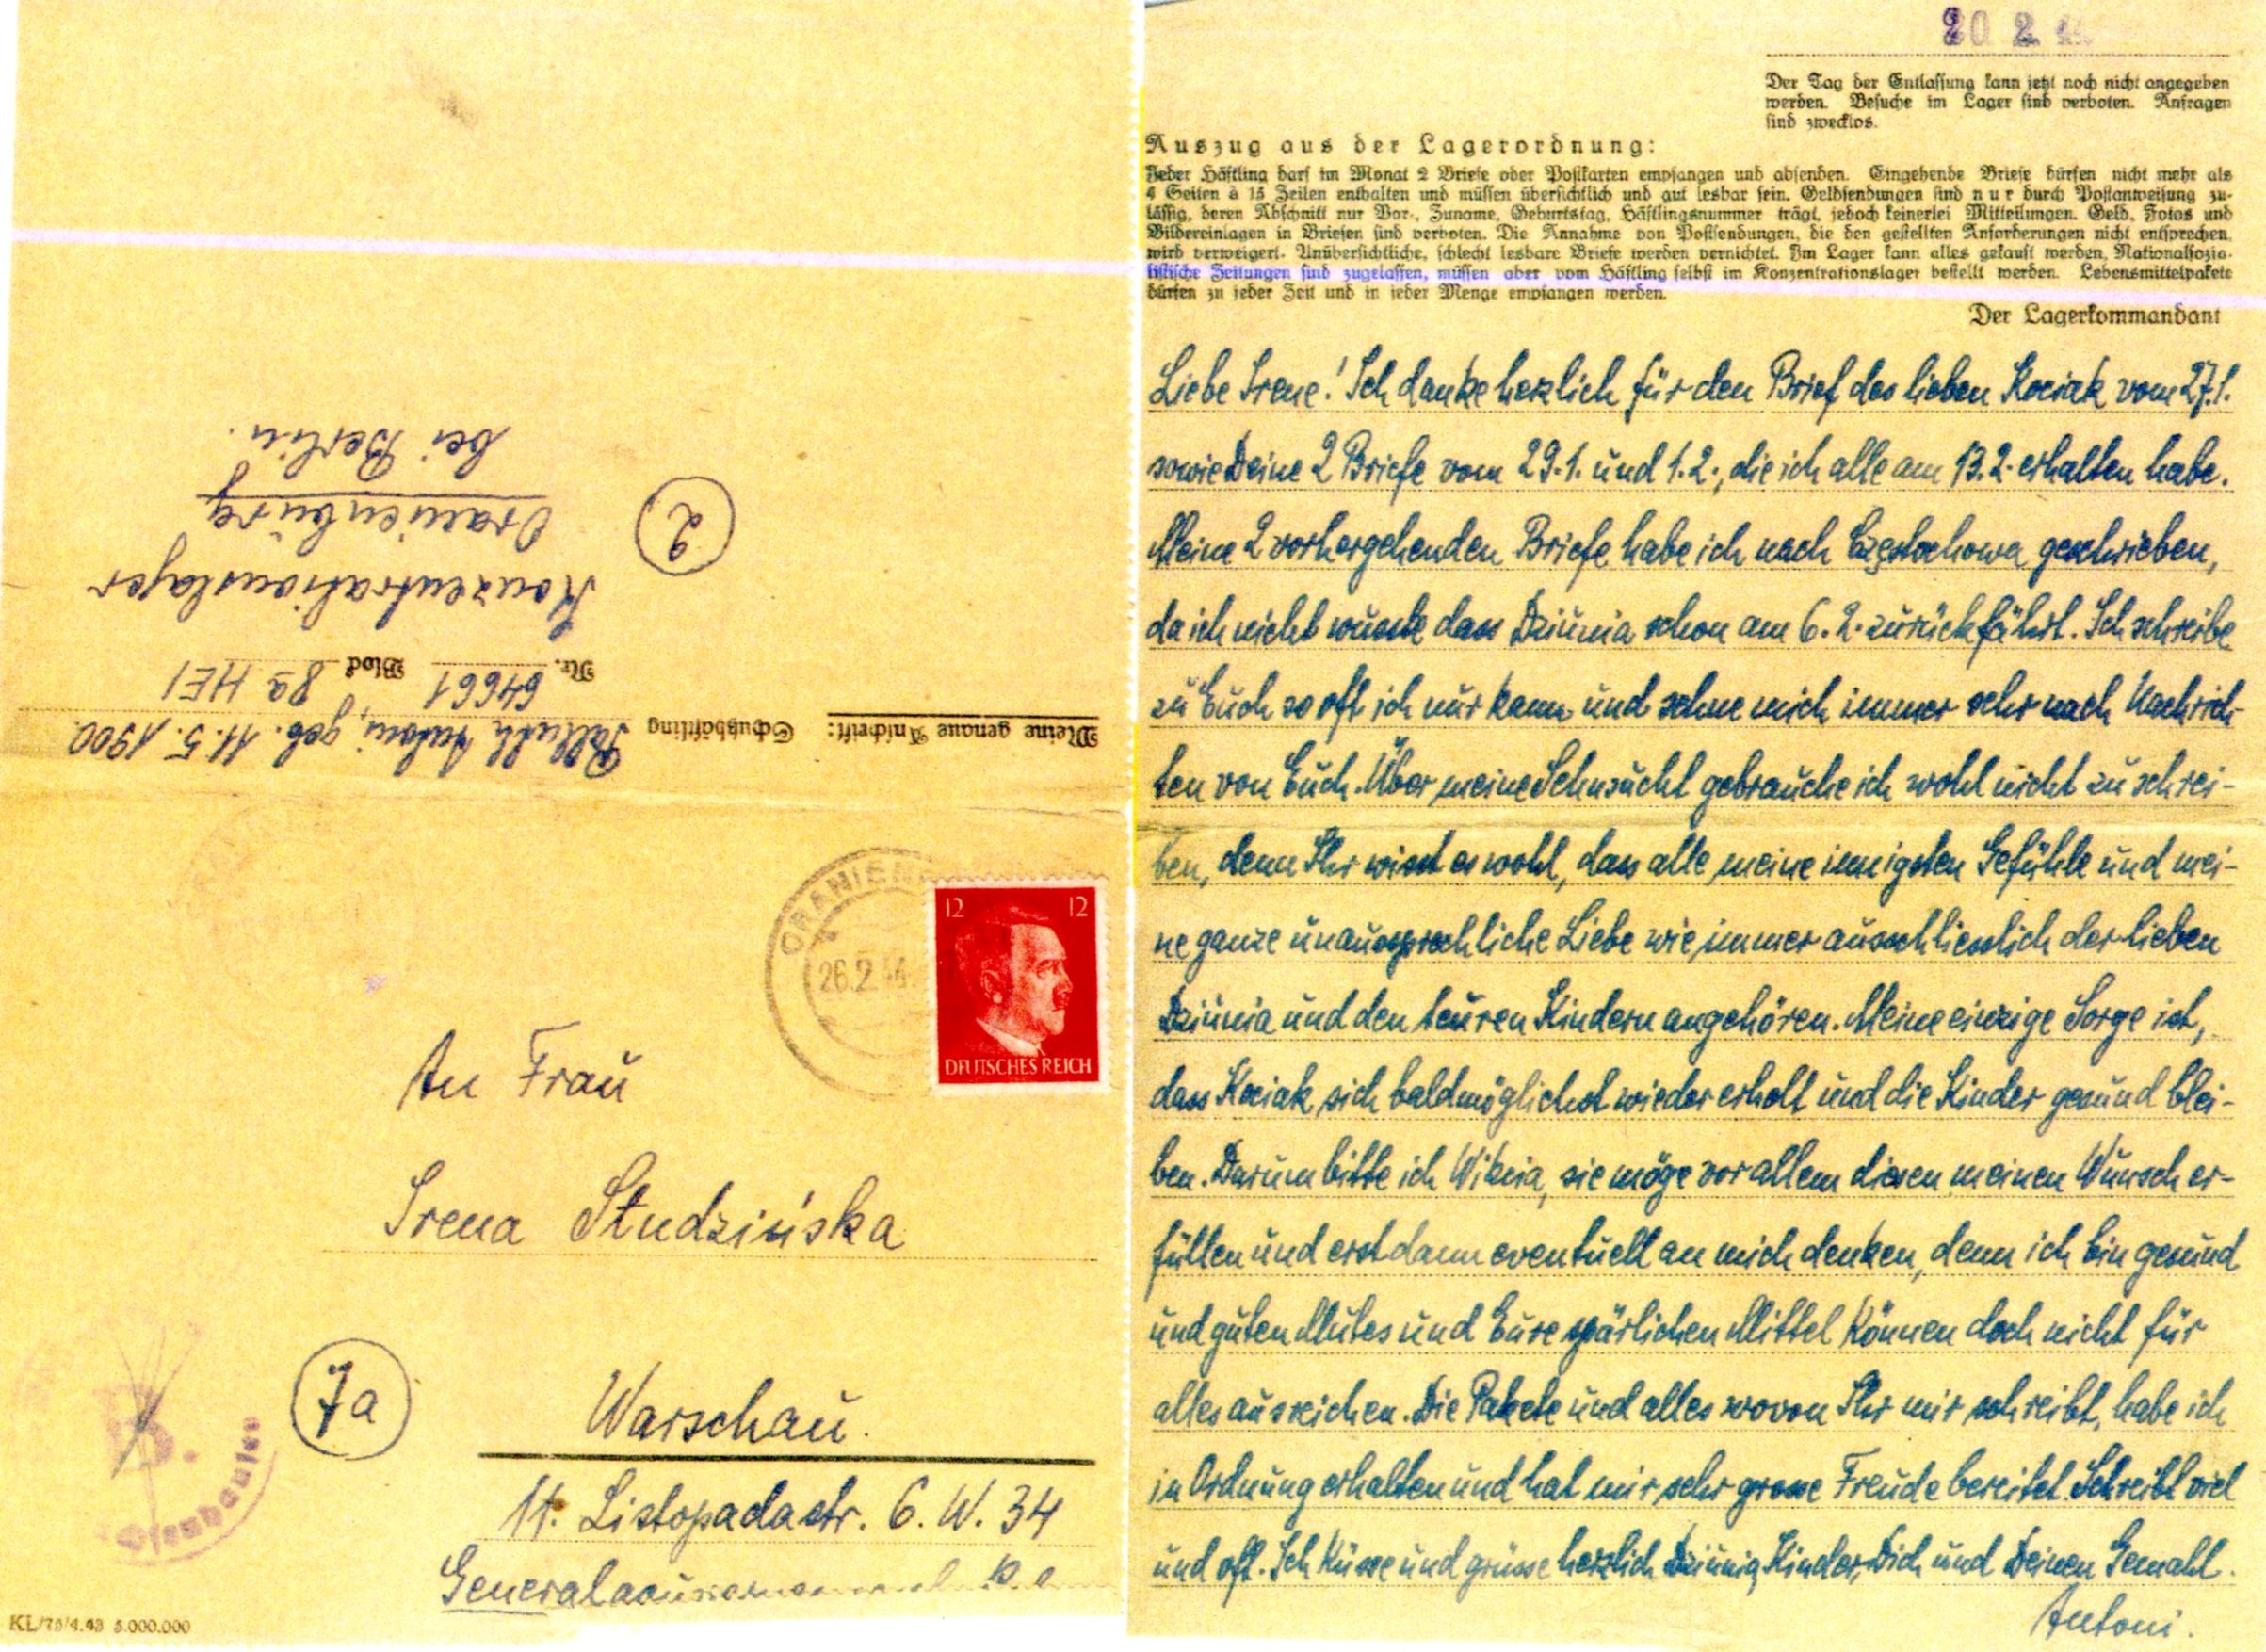 Meine genaue Anschrift:
Schutzhäftling
Palluth Antoni, geb. 11. 5. 1900.
Nr. 64661 Block 8a HEI
Konzentrationslager
Oranienburg
bei Berlin.
2
ORANIEN
26.2.44
12 12
DEUTSCHES REICH
An Frau
Irena Studzińska
7a
Warschau.
11. Listopadastr. 6. W. 34
KL/75/4.43 5.000.000
20 2 44
Der Tag der Entlassung kann jetzt noch nicht angegeben
werden. Besuche im Lager sind verboten. Anfragen
sind zwecklos.
Auszug aus der Lagerordnung:
Jeder Häftling darf im Monat 2 Briefe oder Postkarten empfangen und absenden. Eingehende Briefe dürfen nicht mehr als
4 Seiten à 15 Zeilen enthalten und müssen übersichtlich und gut lesbar sein. Geldsendungen sind nur durch Postanweisung zu-
lässig, deren Abschnitt nur Vor-, Zuname, Geburtstag, Häftlingsnummer trägt, jedoch keinerlei Mitteilungen. Geld, Fotos und
Bildereinlagen in Briefen sind verboten. Die Annahme von Postsendungen, die den gestellten Anforderungen nicht entsprechen,
wird verweigert. Unübersichtliche, schlecht lesbare Briefe werden vernichtet. Im Lager kann alles gekauft werden. Nationalsozia-
listische Zeitungen sind zugelassen, müssen aber vom Häftling selbst im Konzentrationslager bestellt werden. Lebensmittelpakete
dürfen zu jeder Zeit und in jeder Menge empfangen werden.
Der Lagerkommandant
Liebe Irene! Ich danke herzlich für den Brief des lieben Kociak vom 27.1.
sowie Deine 2 Briefe vom 29.1. und 1.2., die ich alle am 13.2. erhalten habe.
Meine 2 vorhergehenden Briefe habe ich nach Częstochowa geschrieben,
da ich nicht wusste dass Dziunia schon am 6.2. zurückfährt. Ich schreibe
zu Euch so oft ich nur kann und sehne mich immer sehr nach Nachrich-
ten von Euch. Über meine Sehnsucht gebrauche ich wohl nicht zu schrei-
ben, denn Ihr wisst es wohl, dass alle meine innigsten Gefühle und mei-
ne ganze unaussprechliche Liebe wie immer ausschliesslich der lieben
Dziunia und den teuren Kindern angehören. Meine einzige Sorge ist,
dass Kociak sich baldmöglichst wieder erholt und die Kinder gesund blei-
ben. Darum bitte ich Wikcia, sie möge vor allem diesen meinen Wunsch er-
füllen und erst dann eventuell an mich denken, denn ich bin gesund
und guten Mutes und Eure spärlichen Mittel können doch nicht für
alles ausreichen. Die Pakete und alles wovon Ihr mir schreibt, habe ich
in Ordnung erhalten und hat mir sehr grosse Freude bereitet. Schreibt viel
und oft. Ich küsse und grüsse herzlich Dziunia, Kinder, Dich und Deinen Gemahl.
Antoni.